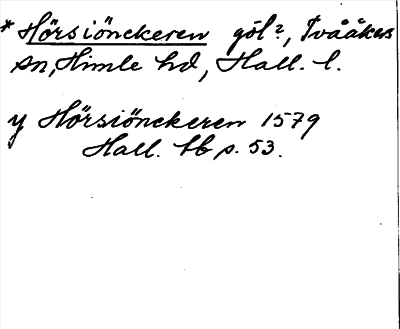 * Hörsiönckeren göl?, Tvååkers
sn, Himle hd, Hall. l.
y Hörsiönckeren 1579
Hall. tb p. 53.